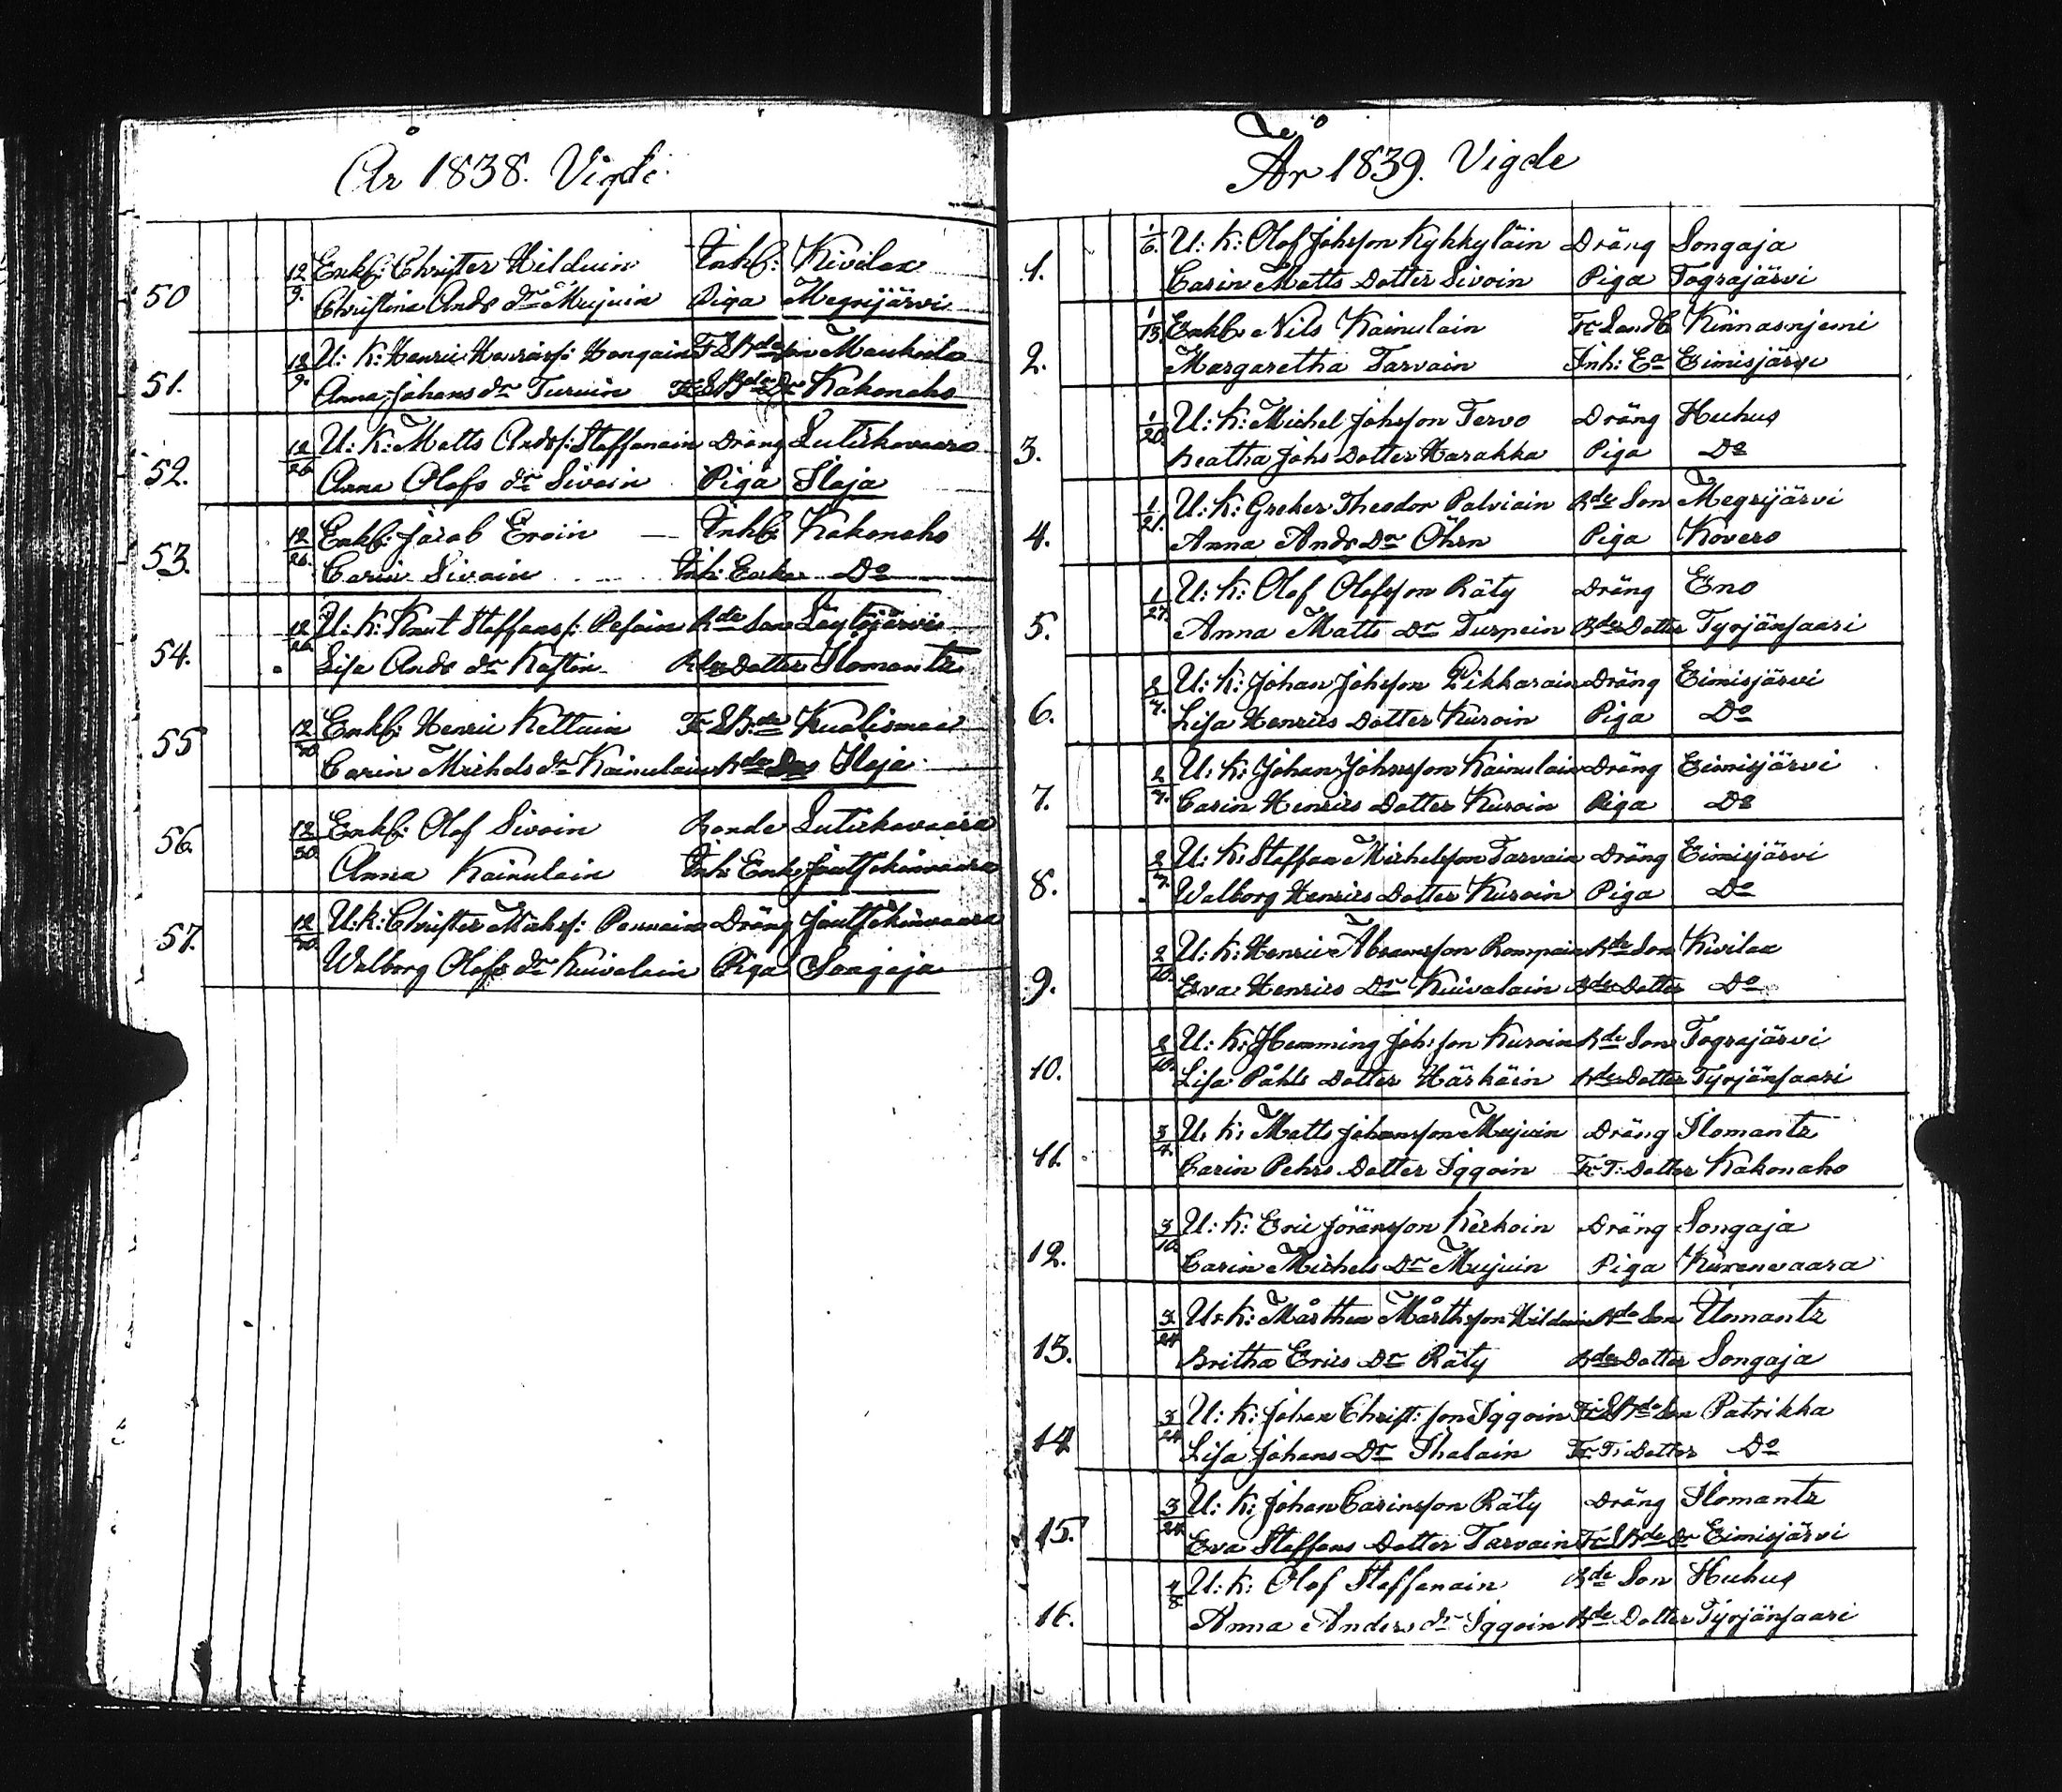 År 1838. Vigde.
50 12/9. Enkl: Christer Hilduin Inhl: Kivilax
Christina Ands dr Mujuin Piga Megrijärvi
51. 12/9. U: K: Henric Henricss: Hongain
Anna Johans dr Turuin Kakonaho
52. 12/26 U: K: Matts Andss: Staffanain Dräng Lutikkavaara
Anna Olofs dr Sivoin Piga Ilaja
53. 12/26. Enkl: Jacob Eroin — Inhl: Kakonaho
Carin Sivoin Inh: Enka Do
54. 12/26. U: K: Knut Staffanss: Pesoin Bde Son
Lisa Ands dr Bde Dotter Ilomantz
55 12/30 Enkl: Henric Kettuin Kuolismaa
Carin Michels dr Kainulain Ilaja
56. 12/30. Enkl: Olof Sivoin Bonde Lutikkavaara
Anna Kainulain Inh: Enka
57. 12/30. U: K: Christer Dräng
Walborg Olofs dr Kuivalain Piga Songaja
År 1839. Vigde
1. 1/6. U: K: Olof Johsson Kykkyläin Dräng Songaja
Carin Matts Dotter Sivoin Piga Tograjärvi
2. 1/13. Enkl: Nils Kainulain Kinnasnjemi
Margaretha Tarvain Inh: Ea Eimisjärvi
3. 1/20. U: K: Michel Johsson Tervo Dräng Huhus
Beatha Johs Dotter Harakka Piga Do
4. 1/21. U: K: Greker Theodor Palviain Bde Son Megrijärvi
Anna Ands Dr Öhrn Piga Kovero
5. 1/27. U: K: Olof Olofsson Räty Dräng Eno
Anna Matts Dr Turpein Bde Dotter Tyrjänsaari
6. 2/7. U: K: Johan Johsson Pikkarain Dräng Eimisjärvi
Lisa Henrics Dotter Kuroin Piga Do
7. 2/7. U: K: Johan Johnsson Kainulain Dräng Eimisjärvi
Carin Henrics Dotter Kuroin Piga Do
8. 2/7. U: K: Staffan Michelsson Tarvain Dräng Eimisjärvi
Walborg Henrics Dotter Kuroin Piga Do
9. 2/10. U: K: Henric Abramsson Rompain Bde Son Kivilax
Eva Henrics Dr Kuivalain Bde Dotter Do
10. 2/10. U: K: Hemming Johsson Kuroin Bde Son Tograjärvi
Lisa Påhls Dotter Härkäin Bde Dotter Tyrjänsaari
11. 3/4. U: K: Matts Johansson Mujuin Dräng Ilomantz
Carin Pehrs Dotter Iggoin Fr T: Dotter Kakonaho
12. 3/10. U: K: Eric Jöransson Kerkoin Dräng Songaja
Carin Michels Dr Mujuin Piga
13. 3/24 U: K: Mårthen Mårthsson Hilduin Bde Son Ilomantz
Britha Erics Dr Räty Bde Dotter Songaja
14 3/24 U: K: Johan Christ: son Iggoin Patrikka
Lisa Johans Dr Ihalain Fr T: Dotter Do
15. 3/24 U: K: Johan Carinsson Räty Dräng Ilomantz
Eva Staffans Dotter Tarvain Eimisjärvi
16. 4/8. U: K: Olof Staffanain Bde Son Huhus
Anna Anders dr Iggoin Bde Dotter Tyrjänsaari